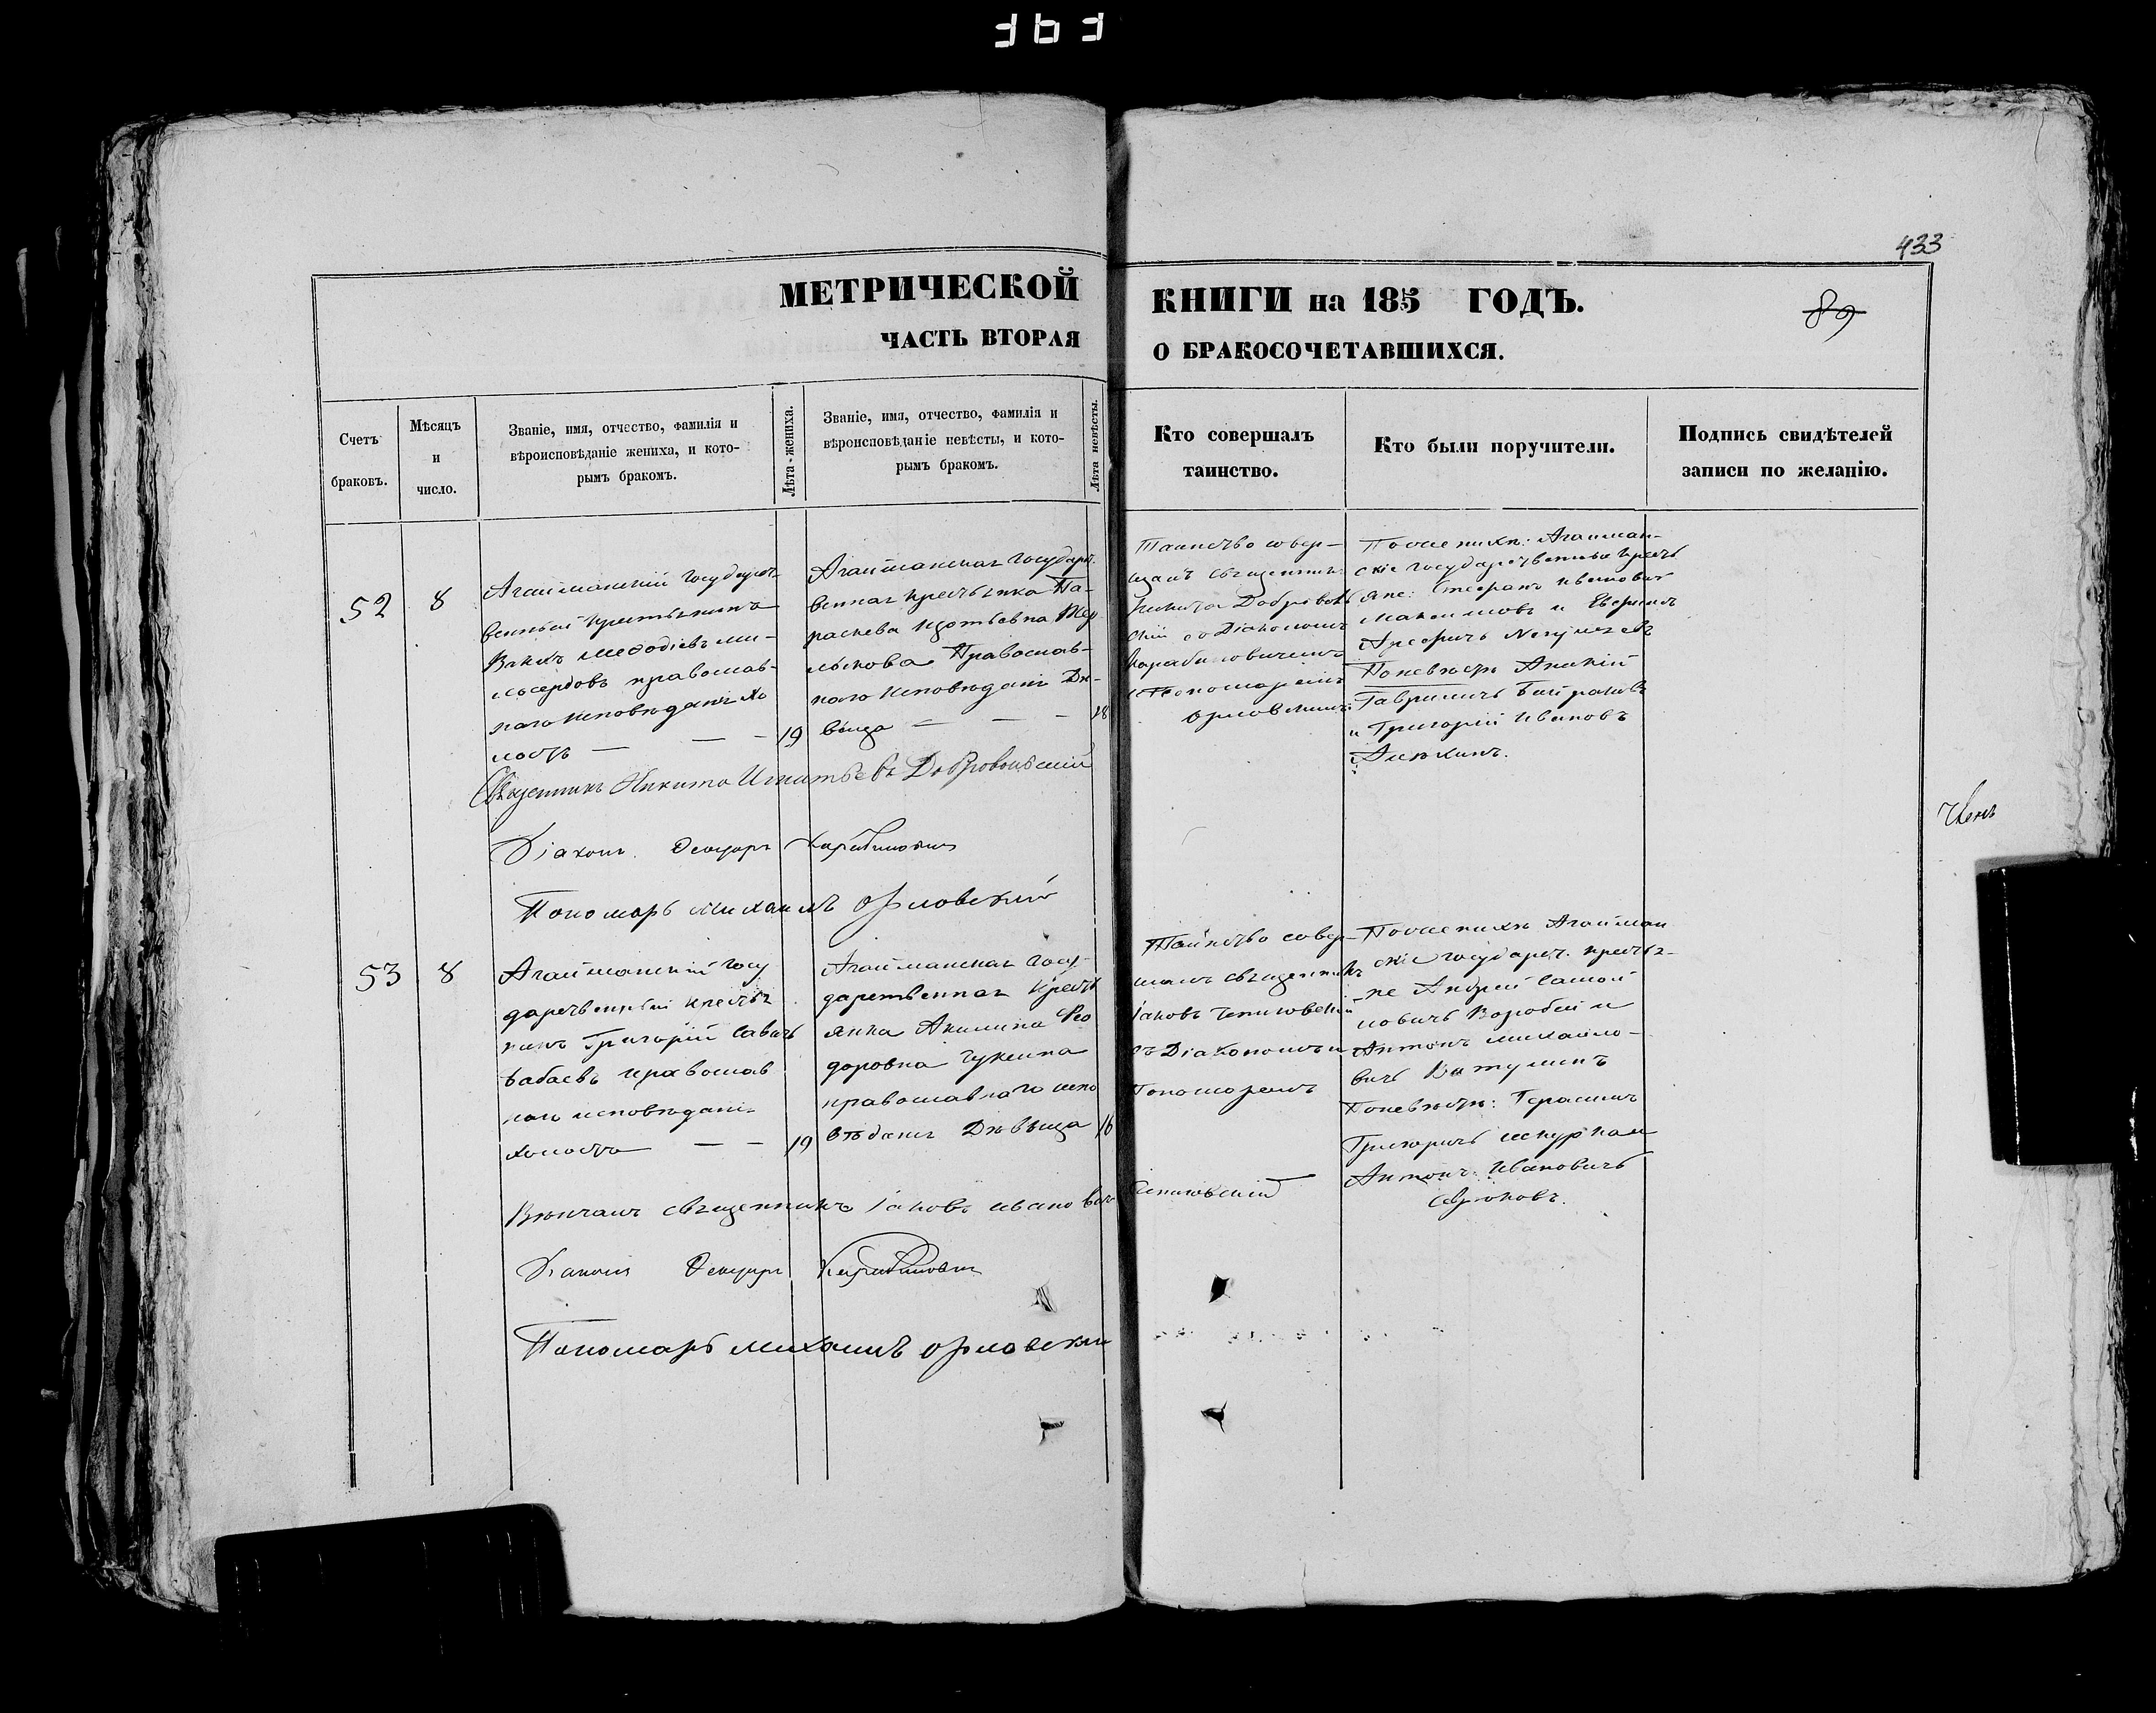 363
433
МЕТРИЧЕСКОЙ КНИГИ на 185 ГОДЪ.
89
ЧАСТЬ ВТОРАЯ О БРАКОСОЧЕТАВШИХСЯ.
Счетъ
браковъ.
Мѣсяцъ
и
число.
Званіе, имя, отчество, фамилія и
вѣроисповѣданіе жениха, и кото-
рымъ бракомъ.
Лѣта жениха.
Званіе, имя, отчество, фамилія и
вѣроисповѣданіе невѣсты, и кото-
рымъ бракомъ.
Лѣта невѣсты.
Кто совершалъ
таинство.
Кто были поручители.
Подпись свидѣтелей
записи по желанію.
52
8
Агайманскій государст-
венный крестьянинъ
меѳодіевъ ми-
лосердовъ православ-
наго исповѣданія хо
лостъ — — —
19
Агайманская государст.
венная крестьянка Па-
раскева Изотьевна
Православ-
наго исповѣданія Дѣ-
вица — — —
18
Таинство совер-
шалъ священникъ
Никита Добровол
скій со Діакономъ
Карабиновичемъ
и Пономаремъ
орловскимъ.
По женихѣ: Агайман-
скіе государственные крест
яне: Стефанъ ивановичъ
максимовъ и
По невѣстѣ Ананій
Гавриличъ
и Григорій ивановъ
Священникъ Никита Игнатьевъ Добровольскій
Діаконъ Ѳеодоръ Карабиновичъ
Пономарь михаилъ орловскій
53
8
Агайманскій госу
дарственный кресть
нинъ Григорій савичъ
бабаевъ православ
наго исповѣданія
холостъ — —
19
Агайманская госу-
дарственная крест
янка Акилина Ѳео
доровна
православнаго испо
вѣданія Дѣвица
16
Таинство совер-
шалъ священникъ
Іаковъ
съ Діакономъ и
Пономаремъ
По женихѣ Агайман
скіе государст. крестья-
не Андрей самой
ловичъ Воробей и
Антонъ михайло-
вичъ
По невѣстѣ: Герасимъ
Григоричъ шкурка и
Антонъ Ивановичъ
Вѣнчалъ священникъ Іаковъ иванович
Діаконъ Ѳеодоръ Карабиновичъ
Пономарь михаилъ орловскій